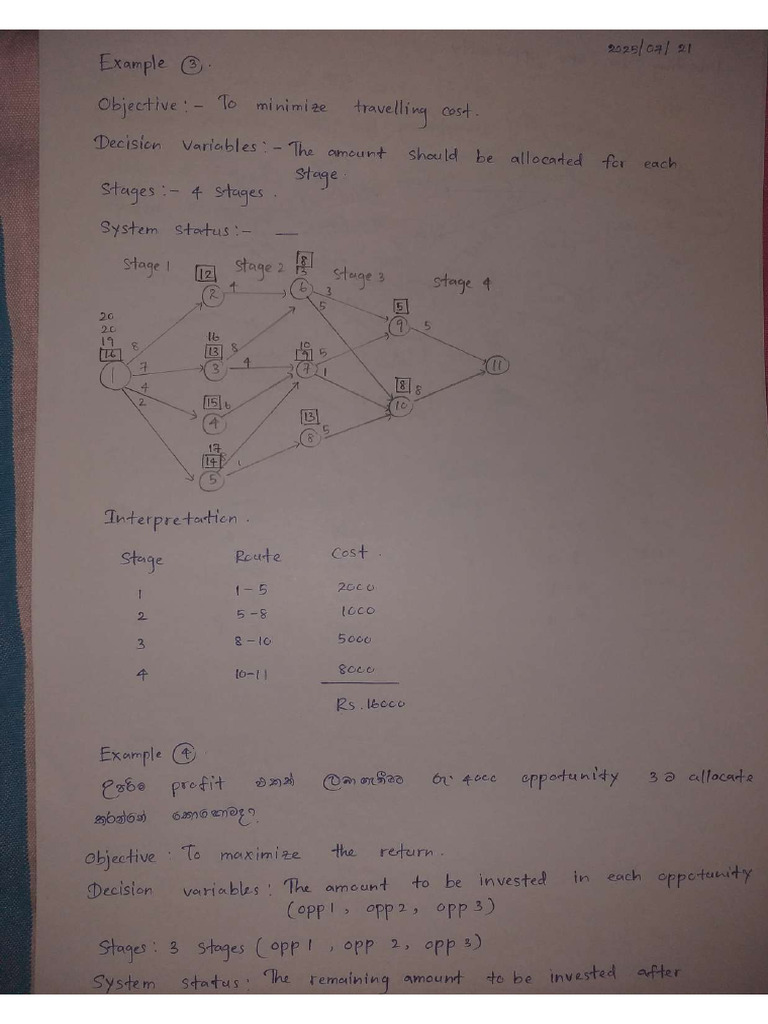 2025/07/21
Example ③.
Objective :- To minimize travelling cost.
Decision variables :- The amount should be allocated for each
stage.
Stages :- 4 stages.
System status :- —
Stage 1 Stage 2 Stage 3 Stage 4
8
13
12 4 6 3
2 5
5
20 9 5
20
19 16 10
16 8 13 8 9 5 11
1 7 3 4 7 1
4 15 6 8 8
2 4 10
13
17 8 5
14 8
5 1
Interpretation.
Stage Route Cost.
1 1-5 2000
2 5-8 1000
3 8-10 5000
4 10-11 8000
Rs. 16000
Example ④
උපරිම profit එකක් රු. 4000 oppotunity 3 ට allocate
කරන්නේ කොහොමද?
Objective : To maximize the return.
Decision variables : The amount to be invested in each oppotunity
(opp 1, opp 2, opp 3)
Stages : 3 stages (opp 1, opp 2, opp 3)
System status : The remaining amount to be invested after